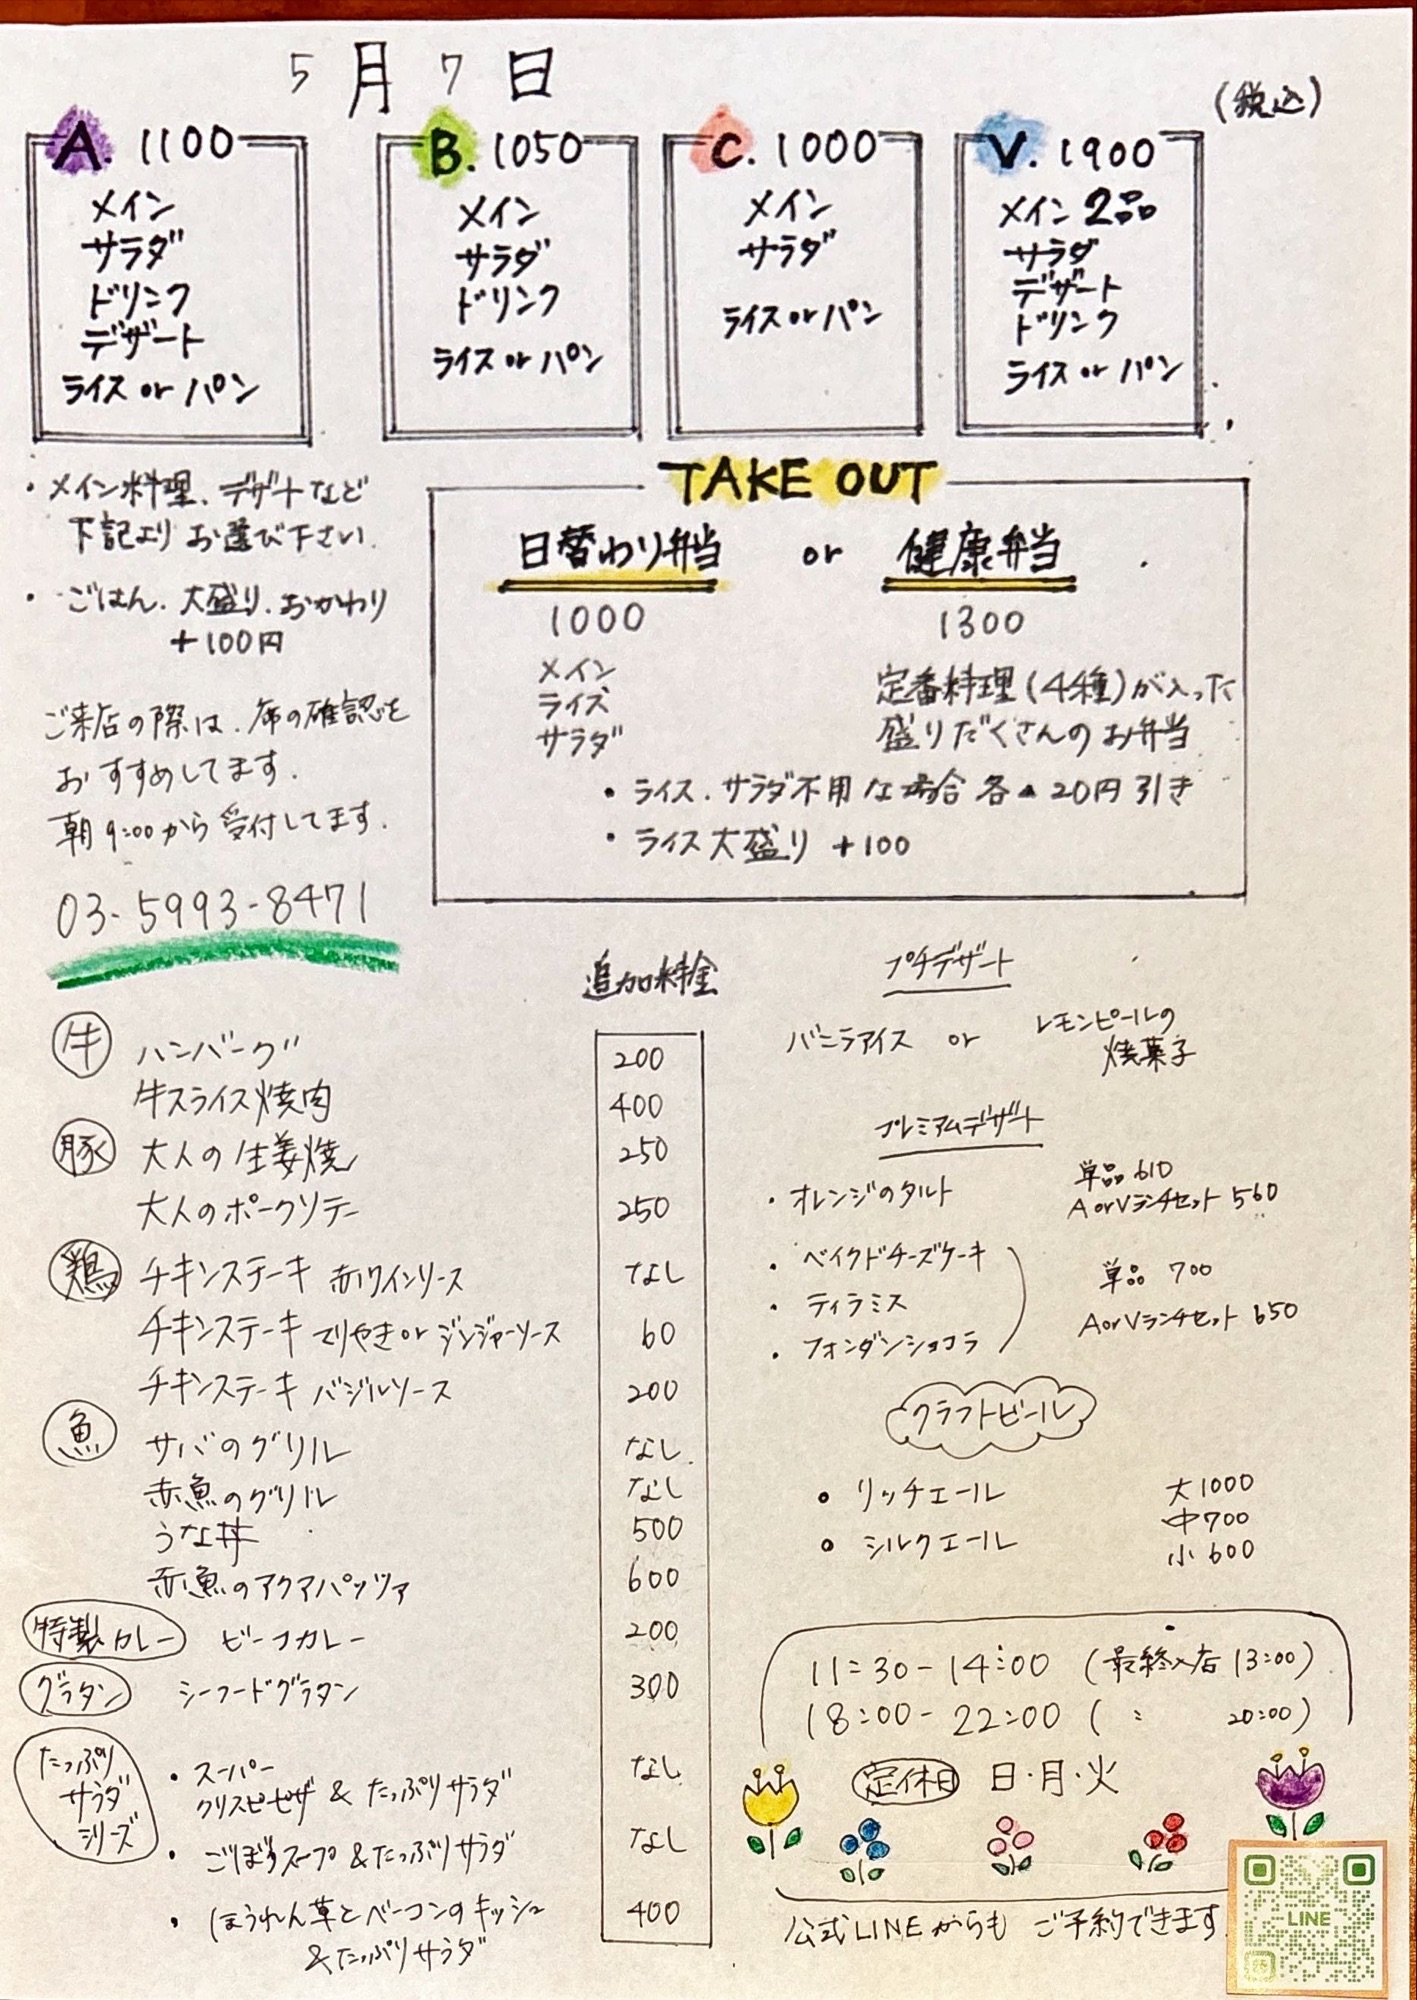 5月7日
(税込)
A. 1100
メイン
サラダ
ドリンク
デザート
ライス or パン
B. 1050
メイン
サラダ
ドリンク
ライス or パン
C. 1000
メイン
サラダ
ライス or パン
V. 1900
メイン 2品
サラダ
デザート
ドリンク
ライス or パン
・メイン料理、デザートなど
下記より お選び下さい.
・ごはん.大盛り.おかわり
+100円
ご来店の際は、席の確認を
おすすめしてます.
朝9:00から受付してます.
03-5993-8471
TAKE OUT
日替わり弁当 or 健康弁当
1000
メイン
ライス
サラダ
1300
定番料理(4種)が入った
盛りだくさんのお弁当
・ライス.サラダ不用な場合各20円引き
・ライス大盛り +100
追加料金
牛 ハンバーグ 200
牛スライス焼肉 400
豚 大人の生姜焼 250
大人のポークソテー 250
鶏 チキンステーキ 赤ワインソース なし
チキンステーキ てりやき or ジンジャーソース 60
チキンステーキ バジルソース 200
魚 サバのグリル なし
赤魚のグリル なし
うな丼 500
赤魚のアクアパッツァ 600
特製カレー ビーフカレー 200
グラタン シーフードグラタン 300
たっぷり
サラダ
シリーズ
・スーパー
クリスピーピザ & たっぷりサラダ なし
・ごりぼうスープ & たっぷりサラダ なし
・ほうれん草とベーコンのキッシュ 400
& たっぷりサラダ
プチデザート
バニラアイス or レモンピールの
焼菓子
プレミアムデザート
・オレンジのタルト
単品 610
A or Vランチセット 560
・ベイクドチーズケーキ
・ティラミス
・フォンダンショコラ
単品 700
A or Vランチセット 650
クラフトビール
・リッチエール
・シルクエール
大1000
中700
小600
11:30-14:00 (最終入店 13:00)
18:00-22:00 ( : 20:00)
定休日 日・月・火
公式LINEからも ご予約できます
LINE